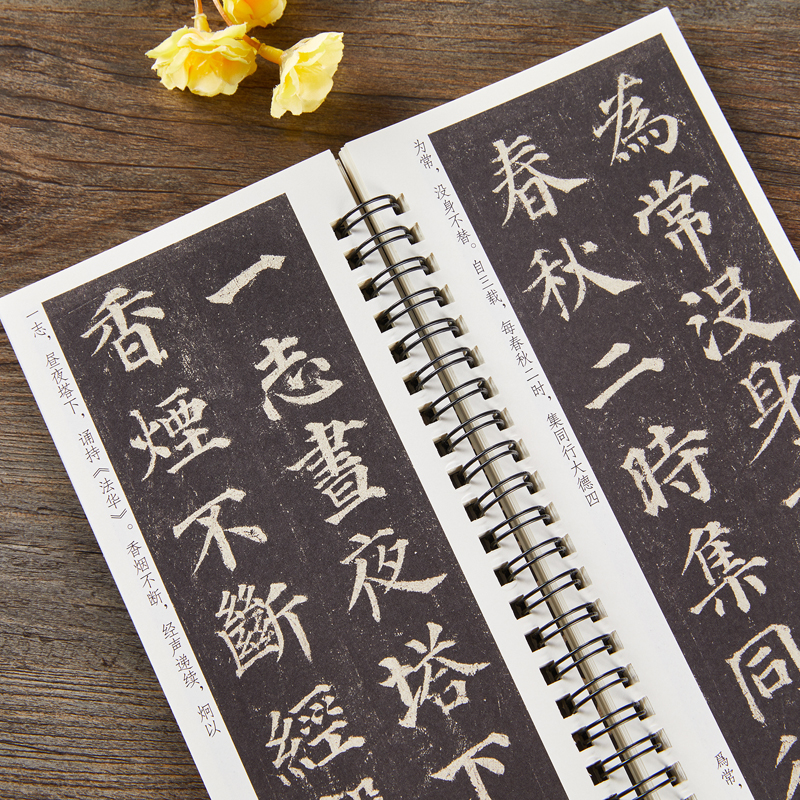 一志晝夜塔下
香煙不斷經
一志，昼夜塔下，诵持《法华》。香烟不断，经声递续，炯以
為常没身
春秋二時集同
为常，没身不替。自三载，每春秋二时，集同行大德四
為常，